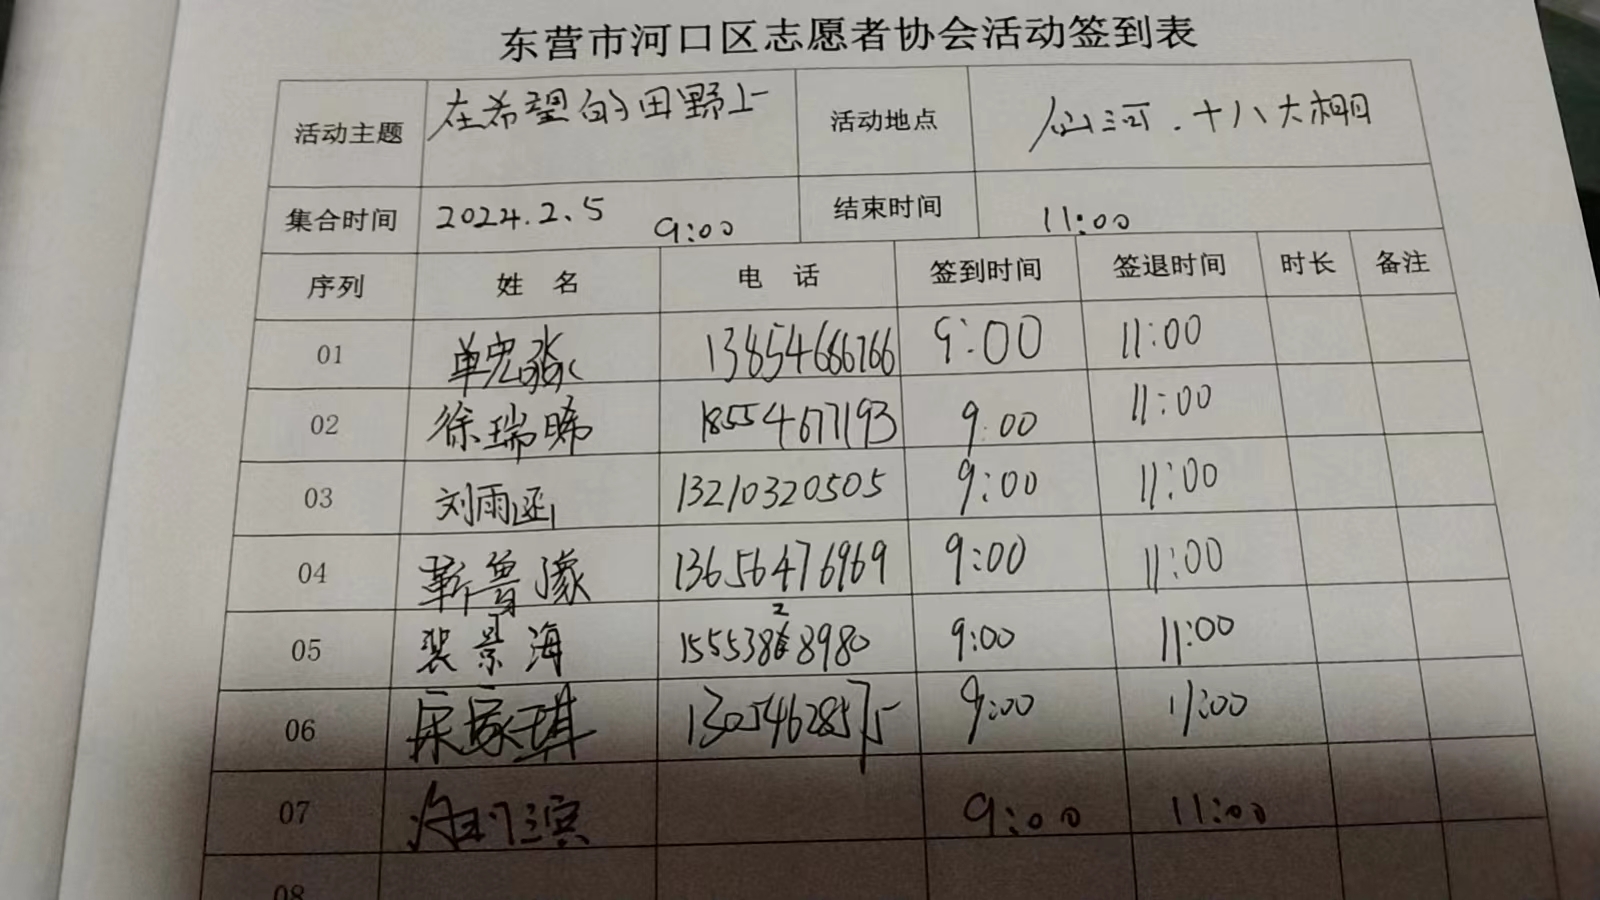 东营市河口区志愿者协会活动签到表
活动主题 在希望的田野上 活动地点 仙河.十八大棚
集合时间 2024.2.5 9:00 结束时间 11:00
序列 姓名 电话 签到时间 签退时间 时长 备注
01 单宏淼 13854686766 9:00 11:00
02 徐瑞晞 18554677193 9:00 11:00
03 刘雨函 13210320505 9:00 11:00
04 靳鲁濛 13656476969 9:00 11:00
05 裴景海 15553828980 9:00 11:00
06 宋家琪 13054628575 9:00 11:00
07 9:00 11:00
08